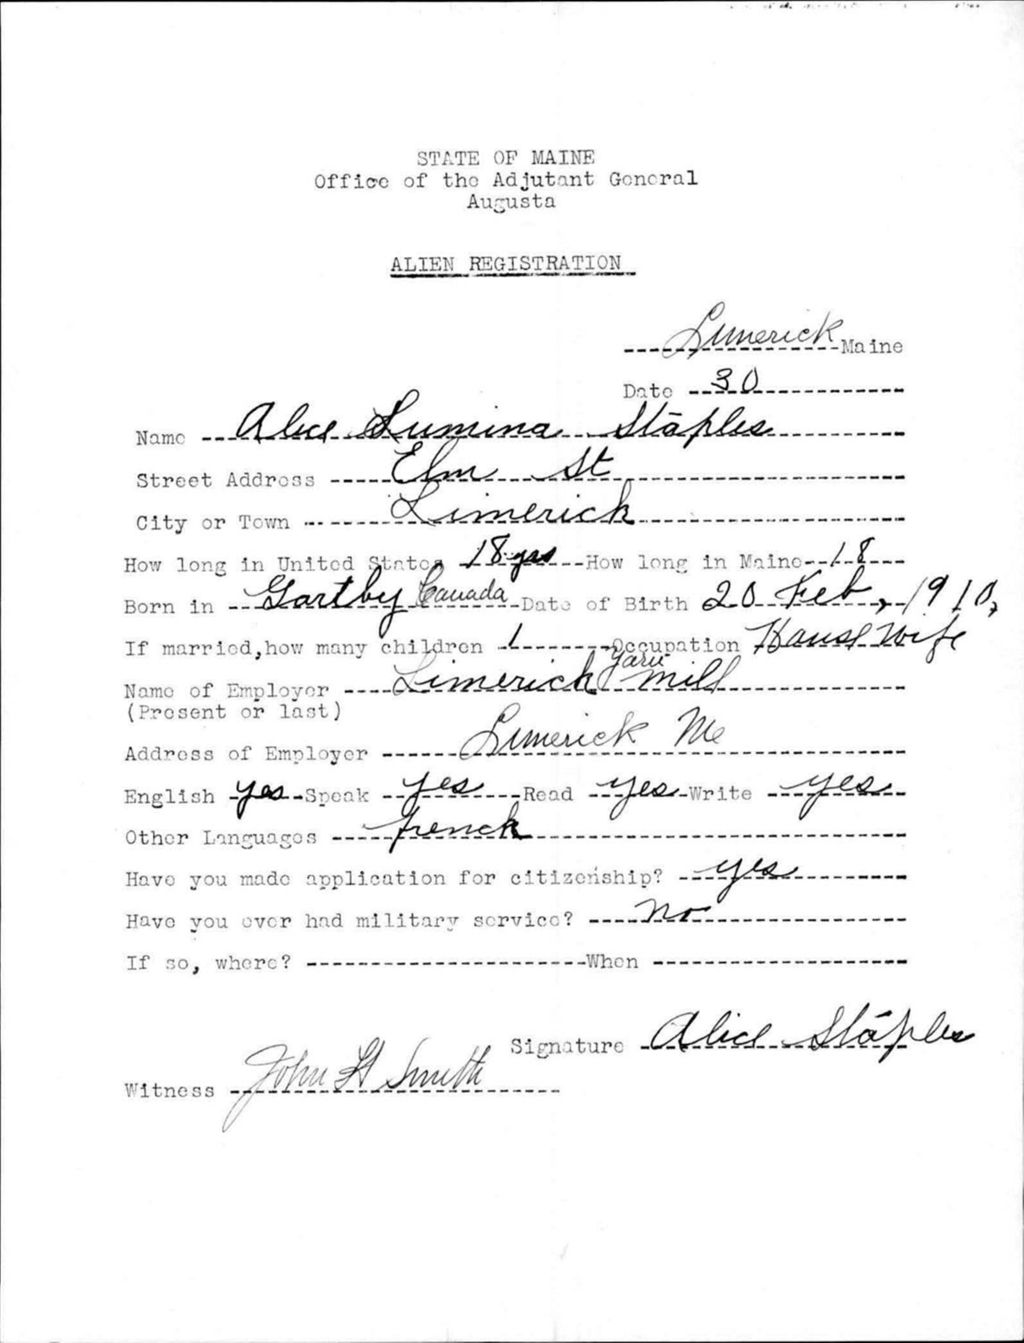 STATE OF MAINE
Office of the Adjutant General
Augusta
ALIEN REGISTRATION
Limerick Maine
Date 30
Name Alice Lumina Staples
Street Address Elm St
City or Town Limerick
How long in United States 18 yrs How long in Maine 18
Born in Gartby Canada Date of Birth 20 Feb, 1910,
If married, how many children 1 Occupation House Wife
Name of Employer Limerick Yarn Mill
(Present or last)
Address of Employer Limerick Me
English yes Speak yes Read yes Write yes
Other Languages french
Have you made application for citizenship? yes
Have you ever had military service? no
If so, where? When
Signature Alice Staples
Witness John H Smith